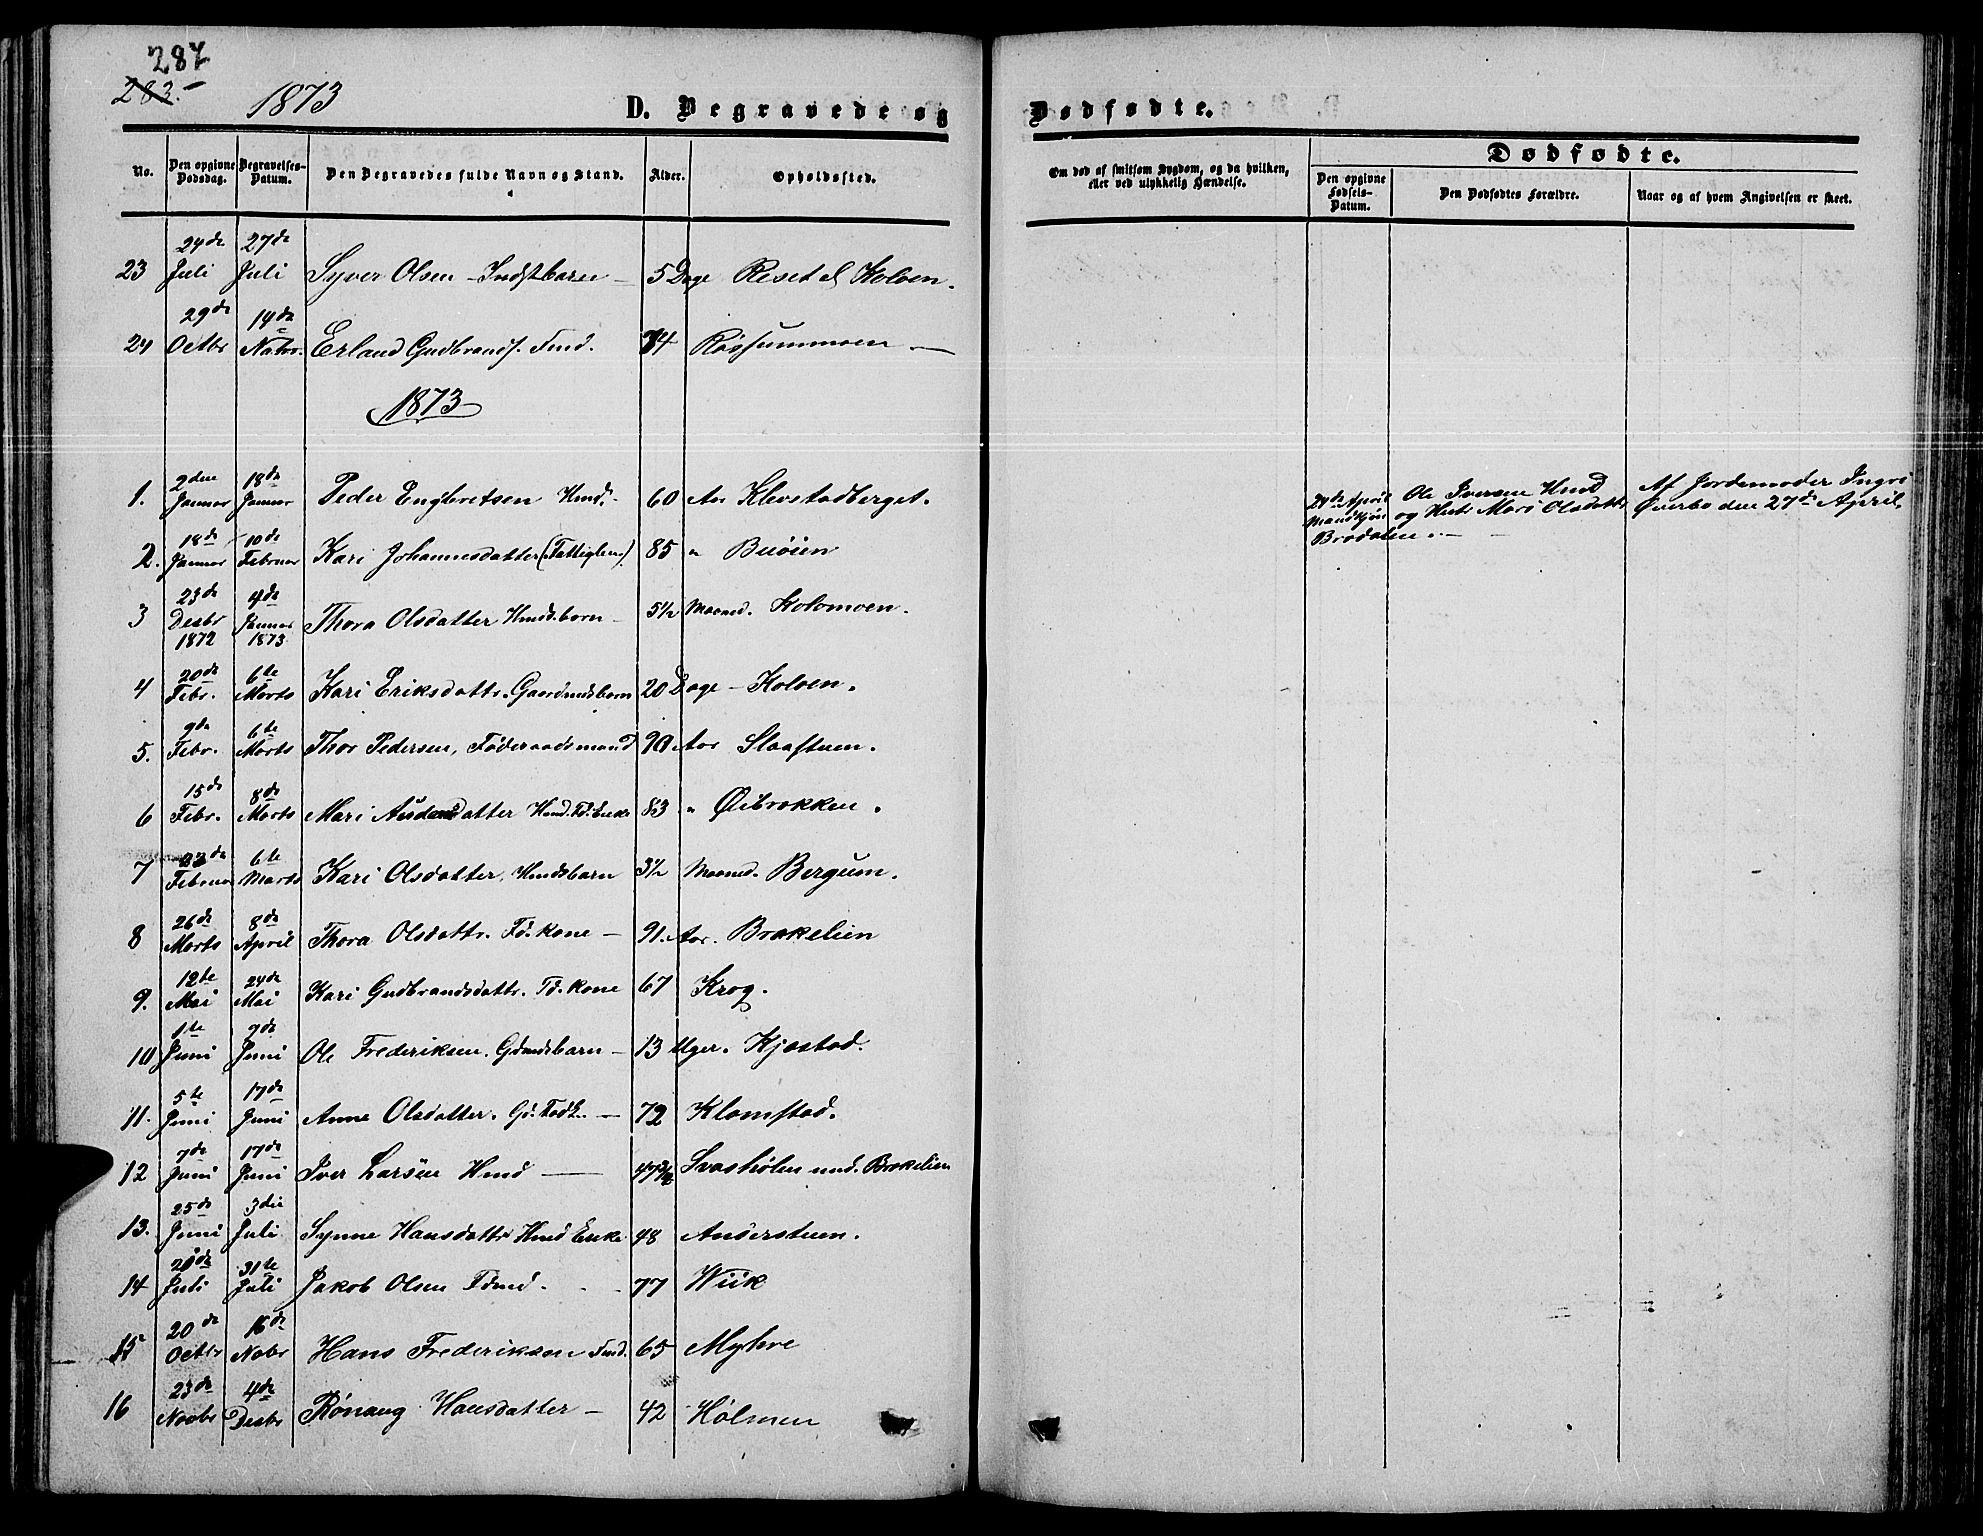 287
283.
1873
D. Begravede og Dødfødte.
No.
Den opgivne Dødsdag.
Begravelses-Datum.
Den Begravedes fulde Navn og Stand.
Alder.
Opholdssted.
Om død af smitsom Sygdom, og da hvilken, eller ved ulykkelig Hændelse.
Dødfødte.
Den opgivne Fødsels-Datum.
Den Dødfødtes Forældre.
Naar og af hvem Angivelsen er skeet.
23 24de Juli 27de Juli Syver Olsen - Indstbarn - 5 Dage Reset Kolven.
24 29de Octbr 14de Erland Gudbrands. Fmd. 74 Røssummoen -
1873
1. 2den Januar 18de Januar Peder Engbretsen Hmd. 60 Aar Klevstadberget.
2. 18de Januar 10de Februar Kari Johannesdatter (Fattiglem) 85 " Buøien
3 23de Desbr 1872 4de Januar 1873 Thora Olsdatter Hmdsbarn - 5½ Maaned. Kolomoen.
4 20de Febr. 6te Marts Kari Eriksdattr. Gaardmdsbarn 20 Dage - Kolven.
5. 9de Febr. 6te Marts Thor Pedersen, Føderaadsmand 90 Aar Slaastuen.
6 15de Febr. 8de Marts Mari Audensdatter Hmd. Fd. Enke 83 " Øibrakken.
7 23de Februar 6te Marts Kari Olsdatter, Hmdsbarn 3½ Maaned. Bergum.
8 26de Marts 8de April Thora Olsdattr. Fd. kone - 91. Aar. Brakelien
9. 12te Mai 24de Mai Kari Gudbrandsdattr. Fd. kone 67 Krog.
10 1te Juni 7de Juni Ole Frederiksen. Gdmdsbarn - 13 Uger. Kjostad.
11. 5te Juni 17de Juni Anne Olsdatter. Gd. - 72 Klomstad.
12 7de Juni 17de Juni Iver Larsen Hmd - 47 Svashølen und. Brakelien
13. 25de Juni 3die Juli Synne Hansdattr Hmd Enke. 48 Anderstuen.
14 20de Juli 31te Juli Jakob Olsen Fdmd. 77 Wiik
15 20de Octbr 16de Nobr Hans Frederiksen Fmd. 65 Myhre
16 23de Novbr 4de Desbr Rønaug Hansdatter - 42 Hølmen
24de April Mandkjøn Bradalen.
Ole Iversen Hmd og Hust. Mari Olsdattr
Af Jordemoder Ingri Øverbo den 27de April,